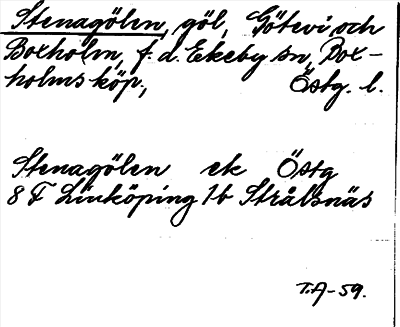 Stenagölen, göl, Götevi och
Boxholm, f. d. Ekeby sn, Box-
holms köp, Östg. l.
Stenagölen ek Östg
8 F Linköping 1b Strålsnäs
T.A-59.